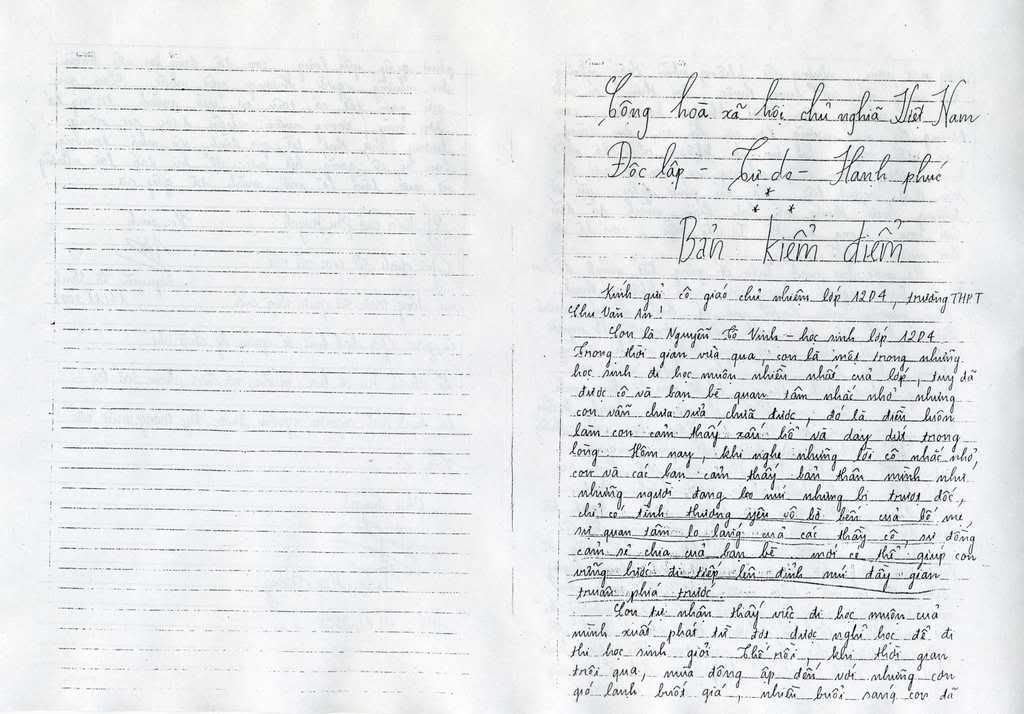 Cộng hoà xã hội chủ nghĩa Việt Nam
Độc lập - Tự do - Hạnh phúc
*
* *
Bản kiểm điểm
Kính gửi cô giáo chủ nhiệm lớp 12D4, trường THPT
Chu Văn An!
Con là Nguyễn Tô Vinh - học sinh lớp 12D4
Trong thời gian vừa qua con là một trong những
học sinh đi học muộn nhiều nhất của lớp, tuy đã
được cô và bạn bè quan tâm nhắc nhở nhưng
con vẫn chưa sửa chữa được, đó là điều luôn
làm con cảm thấy xấu hổ và day dứt trong
lòng. Hôm nay, khi nghe những lời cô nhắc nhở,
con và các bạn cảm thấy bản thân mình như
những người đang leo núi nhưng bị trượt dốc,
chỉ có tình thương yêu vô bờ bến của bố mẹ,
sự quan tâm lo lắng của các thầy cô, sự đồng
cảm sẻ chia của bạn bè mới có thể giúp con
vững bước đi tiếp lên đỉnh núi đầy gian
truân phía trước.
Con tự nhận thấy việc đi học muộn của
mình xuất phát từ đợt được nghỉ học để đi
thi học sinh giỏi. Thế rồi, khi thời gian
trôi qua, mùa đông ập đến với những cơn
gió lạnh buốt giá, nhiều buổi sáng con đã